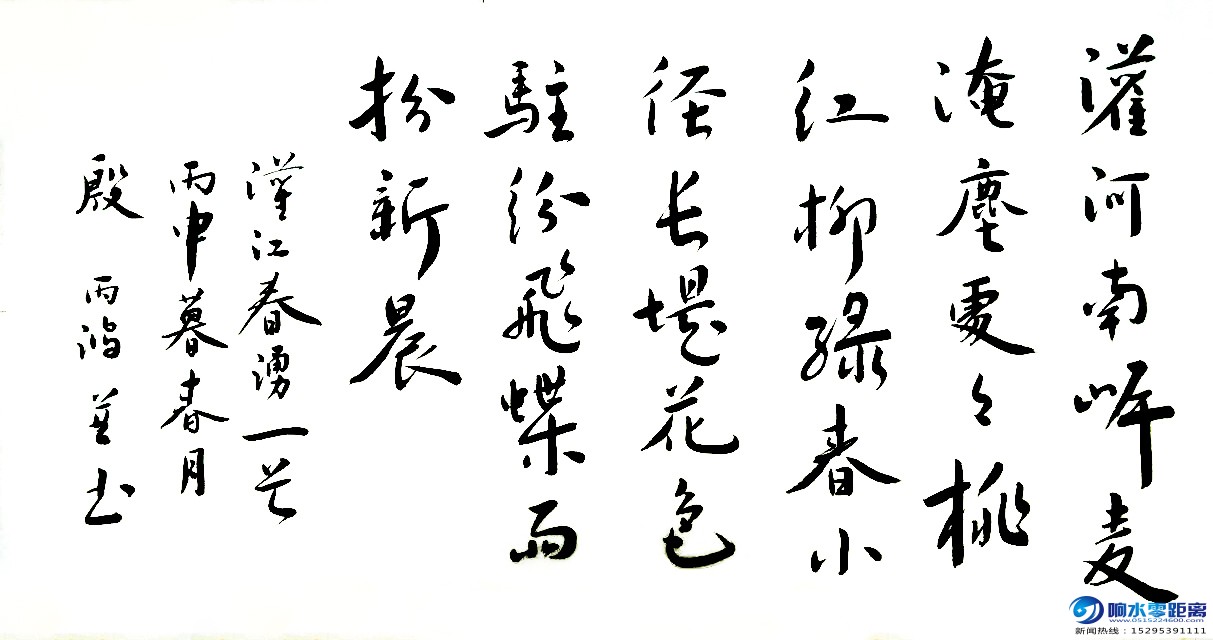 灌河南岸麦
淹塵處々桃
红柳绿春小
径长堤花色
駐纷飛蝶雨
扮新晨
灌江春湧一首
丙申暮春月
殷丙鸿并书
响水零距离
www.0515224600.com
新闻热线：15295391111